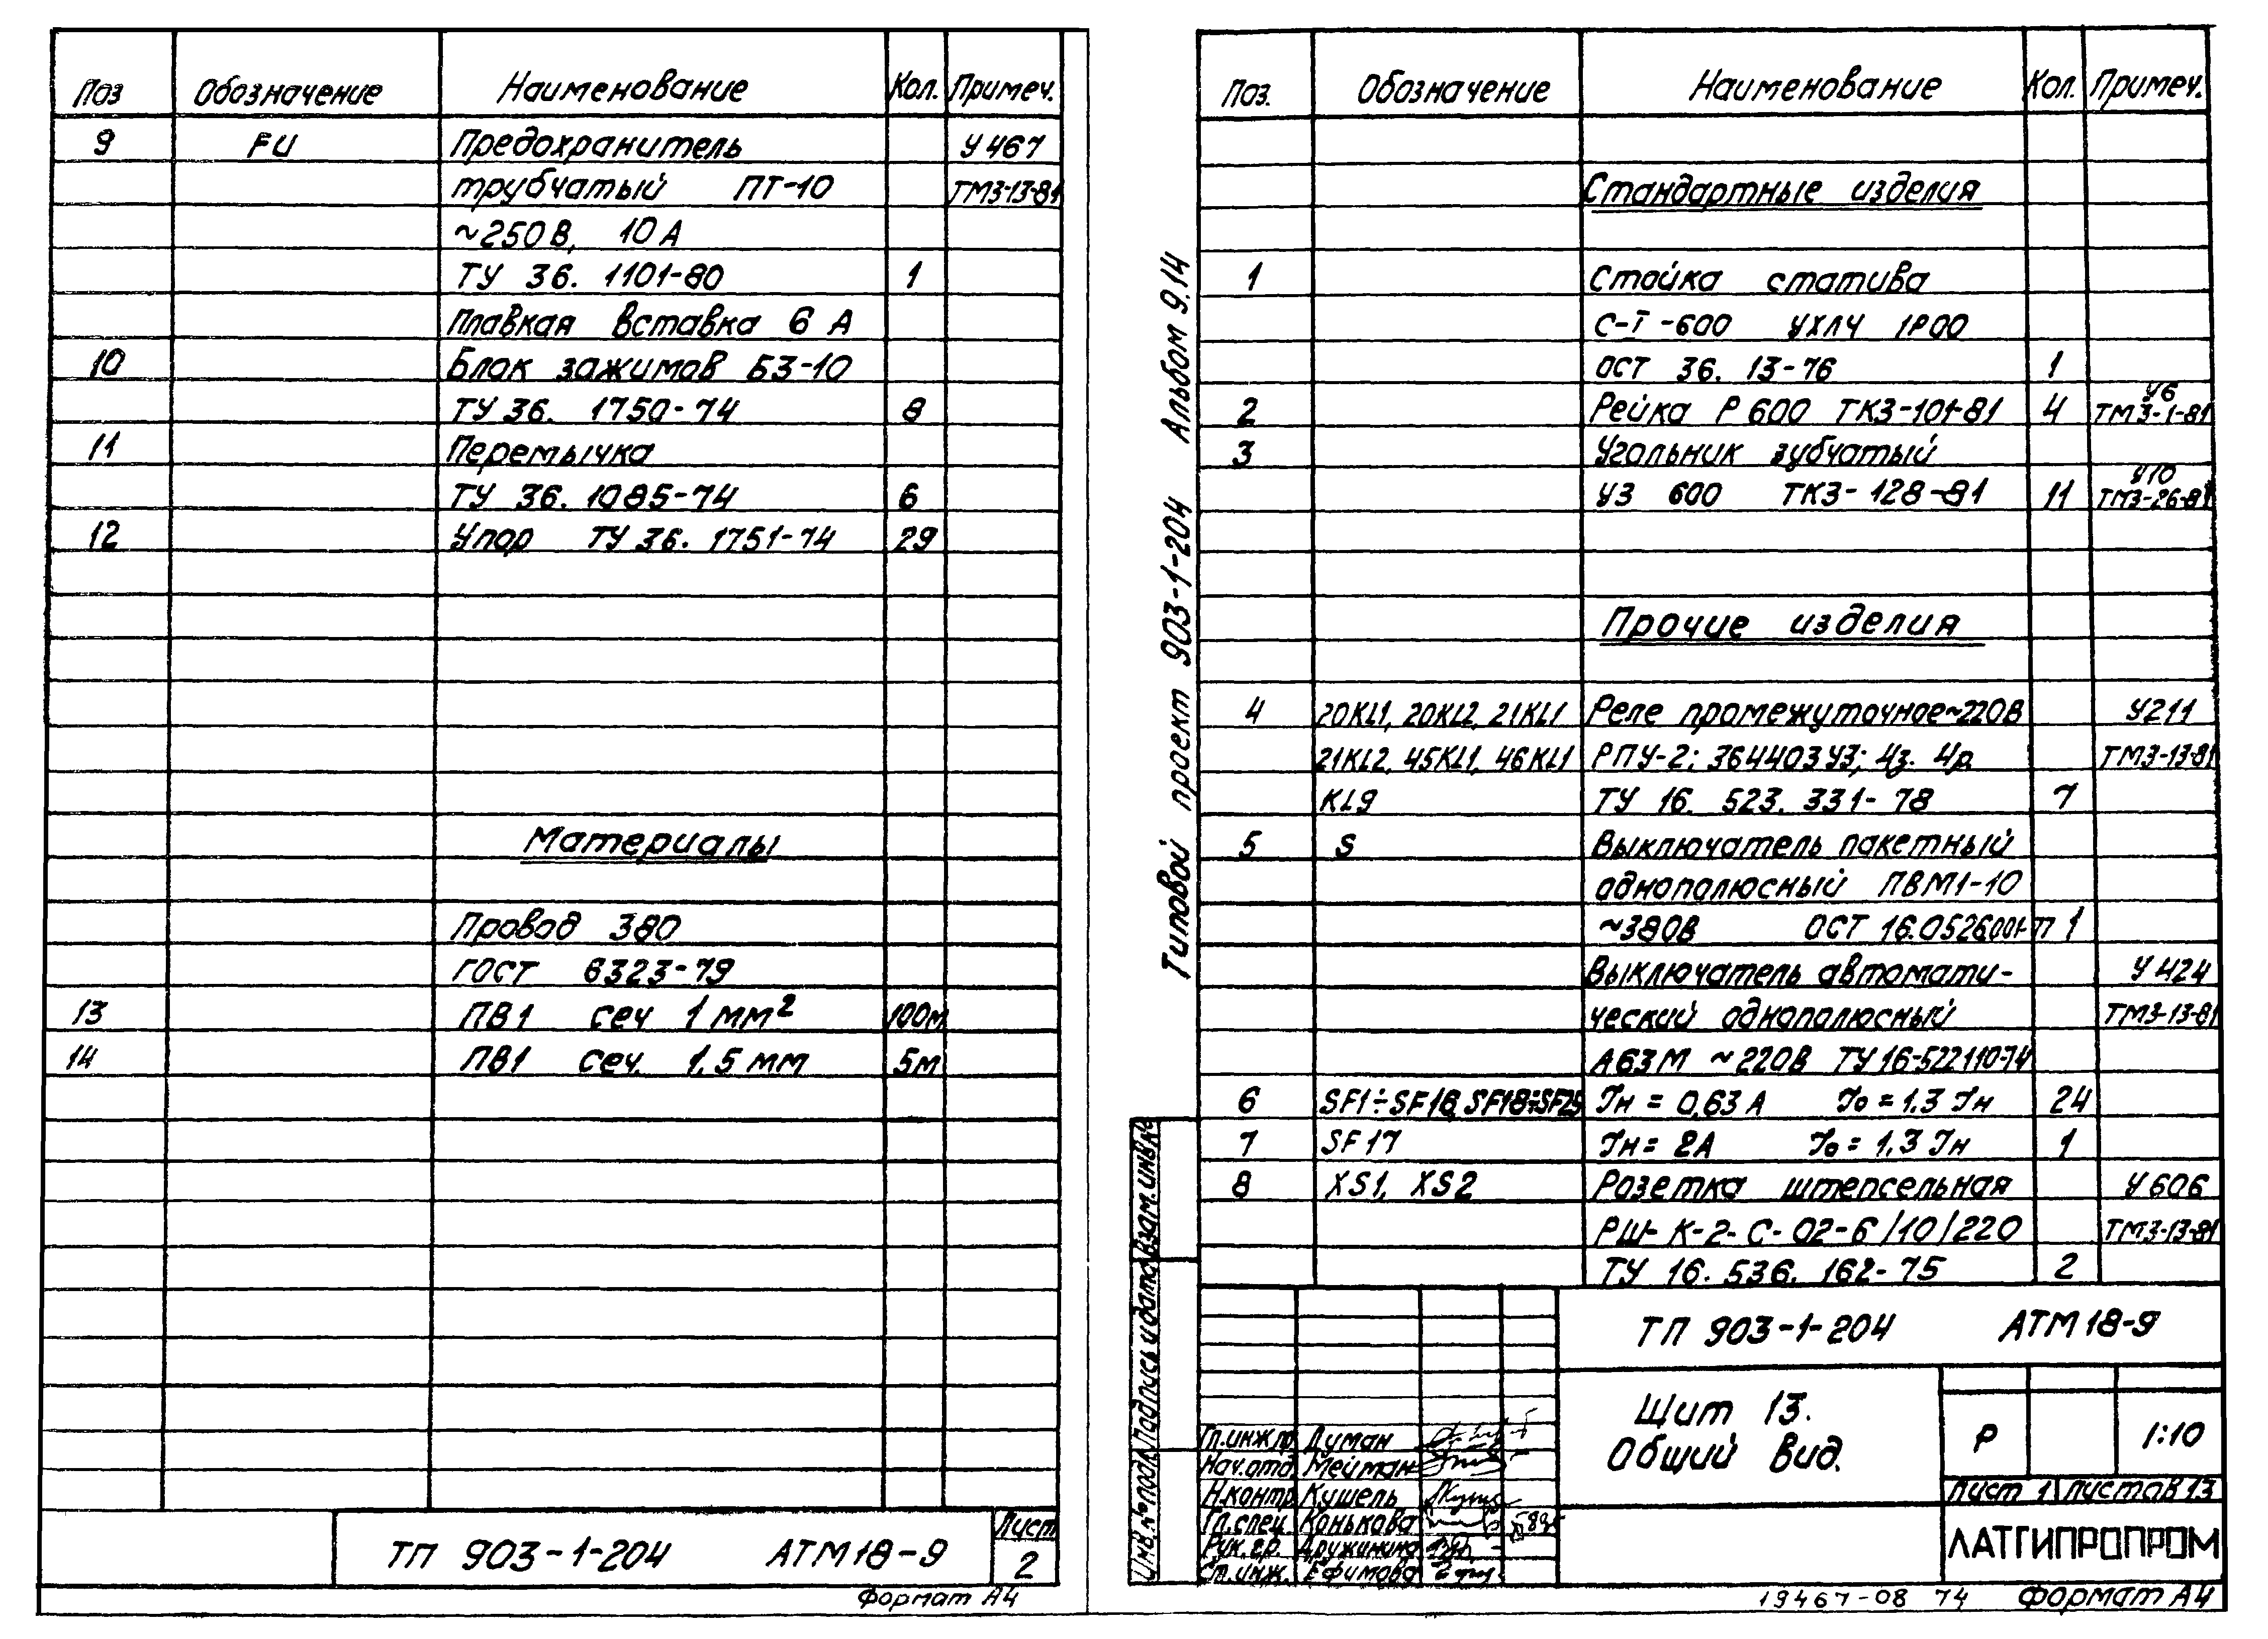 Поз Обозначение Наименование Кол. Примеч.
9 FU Предохранитель У467
трубчатый ПТ-10 ТМ3-13-81
~250В, 10А
ТУ 36. 1101-80 1
Плавкая вставка 6 А
10 Блок зажимов БЗ-10
ТУ 36. 1750-74 8
11 Перемычка
ТУ 36. 1085-74 6
12 Упор ТУ 36. 1751-74 29
Материалы
Провод 380
ГОСТ 6323-79
13 ПВ1 сеч 1 мм² 100м
14 ПВ1 сеч. 1,5 мм 5м
ТП 903-1-204 АТМ18-9
Лист
2
Формат А4
Типовой проект 903-1-204 Альбом 9.14
Поз. Обозначение Наименование Кол. Примеч.
Стандартные изделия
1 Стойка статива
С-I-600 УХЛЧ IP00
ОСТ 36. 13-76 1
У6
2 Рейка Р 600 ТК3-101-81 4 ТМ3-1-81
3 Угольник зубчатый
У10
УЗ 600 ТК3-128-81 11 ТМ3-26-81
Прочие изделия
4 20KL1, 20KL2, 21KL1 Реле промежуточное ~220В У211
21KL2, 45KL1, 46KL1 РПУ-2; 364403У3; 4з. 4р. ТМ3-13-81
KL9 ТУ 16. 523. 331-78 7
5 S Выключатель пакетный
однополюсный ПВМ1-10
~380В ОСТ 16.0526.001-77 1
Выключатель автомати- У424
ческий однополюсный ТМ3-13-81
А63М ~220В ТУ16-522110-74
6 SF1÷SF16, SF18÷SF25 Iн = 0,63 А Iо = 1,3 Iн 24
7 SF17 Iн = 2А Iо = 1,3 Iн 1
8 XS1, XS2 Розетка штепсельная У606
РШ-К-2-С-02-6/10/220 ТМ3-13-81
ТУ 16. 536. 162-75 2
Взам.инв.№
Подпись и дата
Инв.№ подл.
ТП 903-1-204 АТМ18-9
Щит 13.
Общий вид.
Р 1:10
Лист 1 Листов 13
ЛАТГИПРОПРОМ
Гл.инж.пр. Думан
Нач.отд. Мейман
Н.контр. Кушель
Гл.спец. Конькова
Рук.гр. Дружинина
Ст.инж. Ефимова
19467-08 74 Формат А4